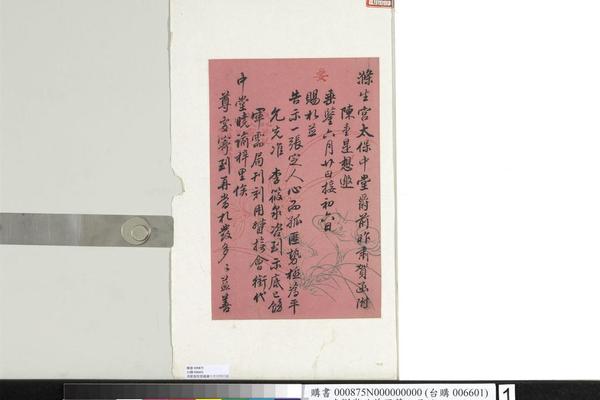 滌生宮太保中堂爵前昨肅賀函附
陳壹是想邀
垂鑒六月廿日接初六日
賜札並
告示一張定人心而孤匪勢極為平
允先准李筱泉咨到示底已飭
軍需局刊刻用雙接會銜代
中堂曉諭梓里俟
尊處寄到再當札發多多益善
購書 000875N000000000 (台購 006601)
1